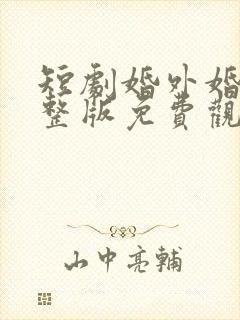 短劇婚外婚
整版免費觀
山中亮輔